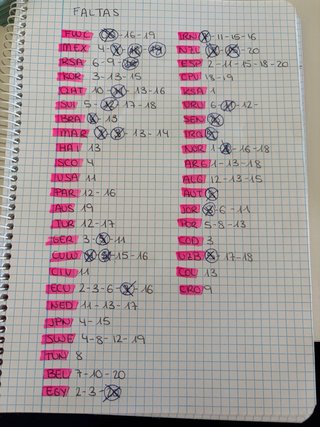 FALTAS
FWC -16-19
MEX 4-
RSA 6-9-
KOR 3-13-15
QAT 10- -13-16
SUI 5- -17-18
BRA -13
MAR - -13-14
HAI 13
SCO 4
USA 11
PAR 12-16
AUS 19
TUR 12-17
GER 3- -11
CUW -15-16
CIV 11
ECU 2-3-6- -16
NED 11-13-17
JPN 4-15
SWE 4-8-12-19
TUN 8
BEL 7-10-20
EGY 2-3-
IRN -11-15-16
NZL - -20
ESP 2-11-15-18-20
CPV 18-19
KSA 1
URU 6- -12-
SEN
IRQ
NOR 1- -16-18
ARG 1-13-18
ALG 12-13-15
AUT
JOR -6-11
POR 5-8-13
COD 3
UZB -17-18
COL 13
CRO 9